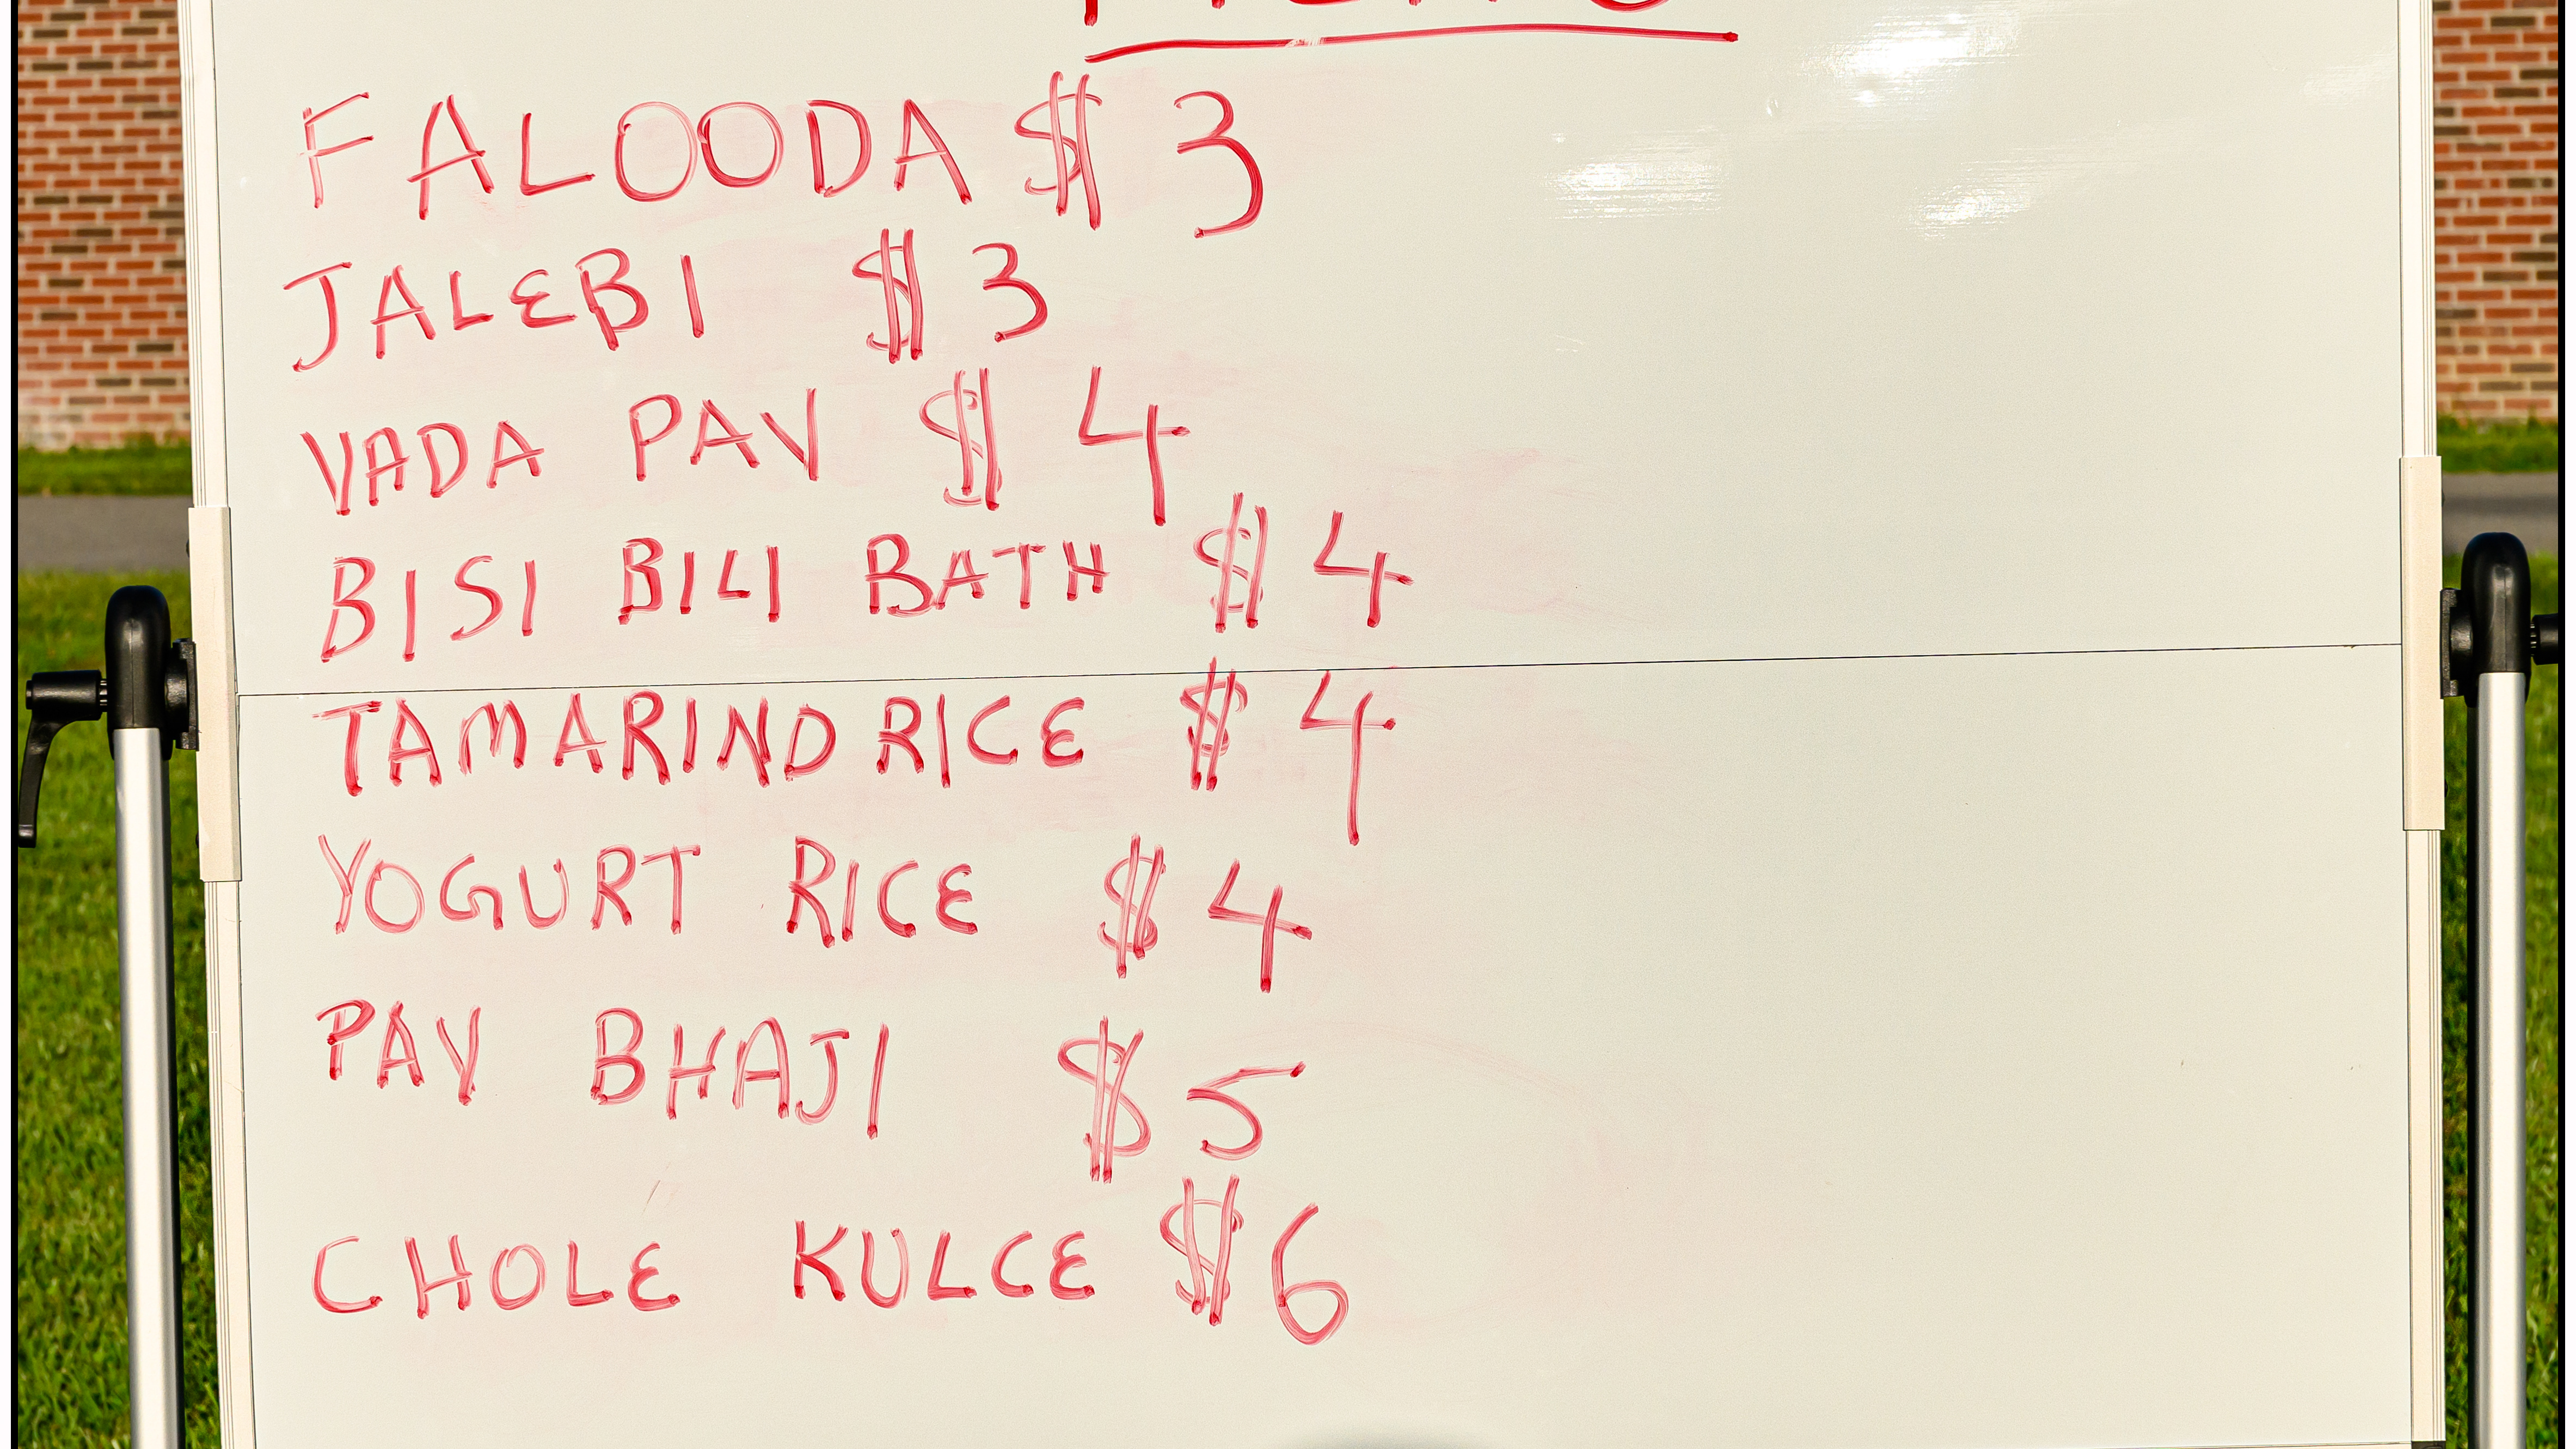 FALOODA $ 3
JALEBI $ 3
VADA PAV $ 4
BISI BILI BATH $ 4
TAMARIND RICE $ 4
YOGURT RICE $ 4
PAV BHAJI $ 5
CHOLE KULCE $ 6